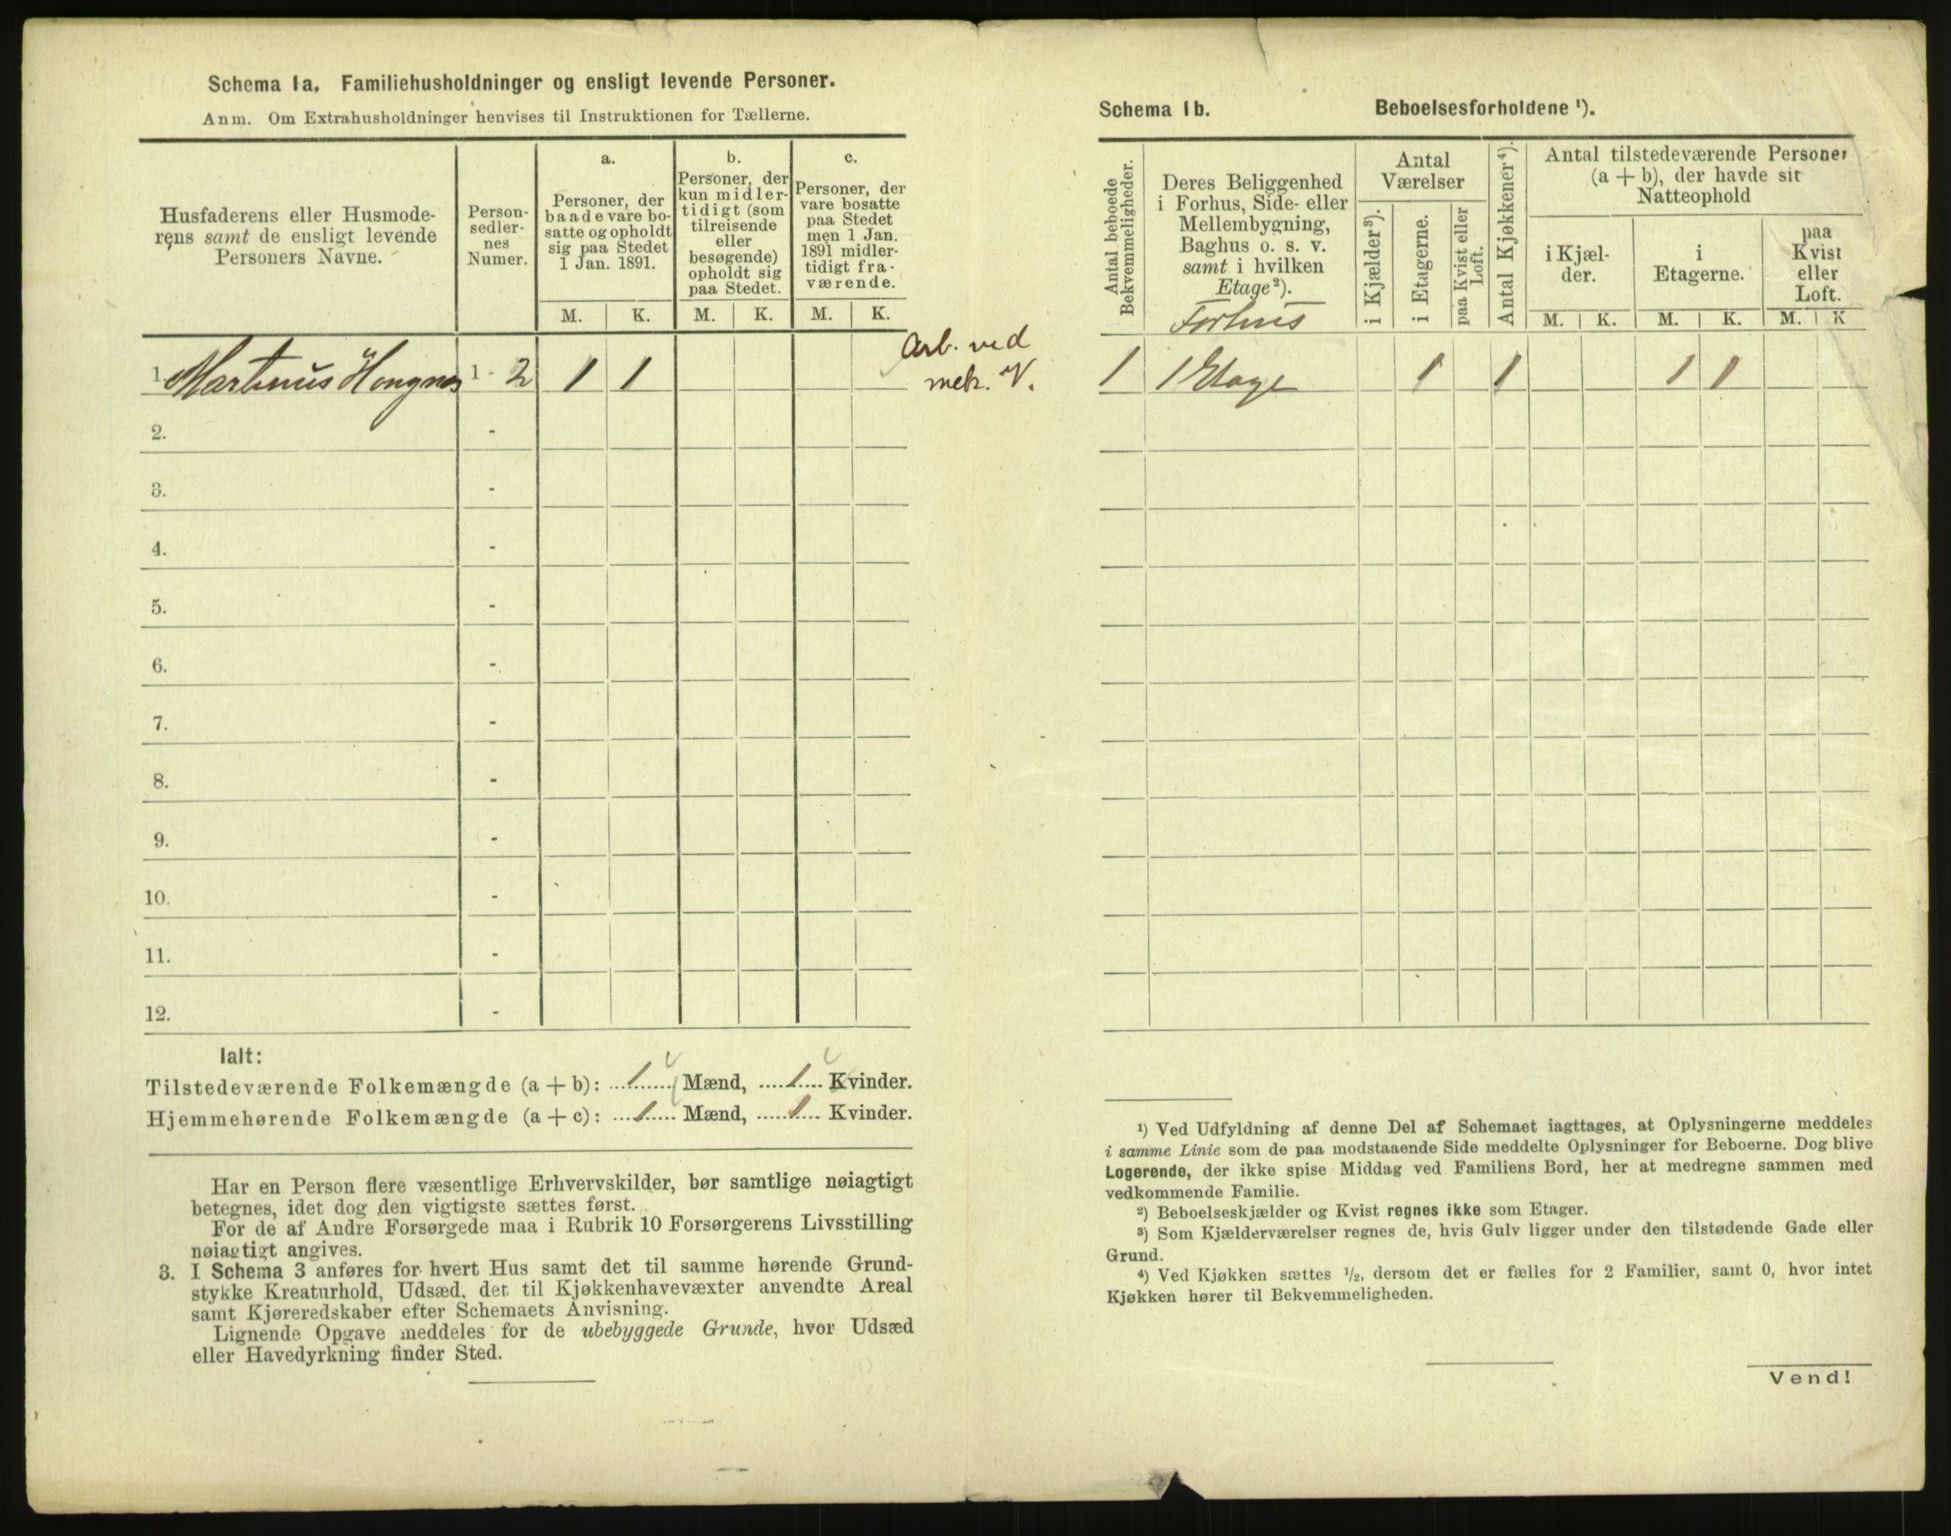 Schema 1a. Familiehusholdninger og ensligt levende Personer.
Anm. Om Extrahusholdninger henvises til Instruktionen for Tællerne.
Husfaderens eller Husmode-
rens samt de ensligt levende
Personers Navne.
Person-
sedler-
nes
Numer.
a.
Personer, der
baade vare bo-
satte og opholdt
sig paa Stedet
1 Jan. 1891.
b.
Personer, der
kun midler-
tidigt (som
tilreisende
eller
besøgende)
opholdt sig
paa Stedet.
c.
Personer, der
vare bosatte
paa Stedet
men 1 Jan.
1891 midler-
tidigt fra-
værende.
M. K. M. K. M. K.
1. Martinus 1 - 2 1 1
Arb. ved
mek. V.
2. -
3. -
4. -
5. -
6. -
7. -
8. -
9. -
10. -
11. -
12. -
Ialt:
Tilstedeværende Folkemængde (a + b): 1 Mænd, 1 Kvinder.
Hjemmehørende Folkemængde (a + c): 1 Mænd, 1 Kvinder.
Har en Person flere væsentlige Erhvervskilder, bør samtlige nøiagtigt
betegnes, idet dog den vigtigste sættes først.
For de af Andre Forsørgede maa i Rubrik 10 Forsørgerens Livsstilling
nøiagtigt angives.
3. I Schema 3 anføres for hvert Hus samt det til samme hørende Grund-
stykke Kreaturhold, Udsæd, det til Kjøkkenhavevæxter anvendte Areal
samt Kjøreredskaber efter Schemaets Anvisning.
Lignende Opgave meddeles for de ubebyggede Grunde, hvor Udsæd
eller Havedyrkning finder Sted.
Schema 1b. Beboelsesforholdene ¹).
Antal beboede
Bekvemmeligheder.
Deres Beliggenhed
i Forhus, Side- eller
Mellembygning,
Baghus o. s. v.
samt i hvilken
Etage²).
Forhus
Antal
Værelser
i Kjælder³).
i Etagerne.
paa Kvist eller
Loft.
Antal Kjøkkener⁴).
Antal tilstedeværende Personer
(a + b), der havde sit
Natteophold
i Kjæl-
der.
i
Etagerne.
paa
Kvist
eller
Loft.
M. K. M. K. M. K
1 1 Etage 1 1 1 1
¹) Ved Udfyldning af denne Del af Schemaet iagttages, at Oplysningerne meddeles
i samme Linie som de paa modstaaende Side meddelte Oplysninger for Beboerne. Dog blive
Logerende, der ikke spise Middag ved Familiens Bord, her at medregne sammen med
vedkommende Familie.
²) Beboelseskjælder og Kvist regnes ikke som Etager.
³) Som Kjælderværelser regnes de, hvis Gulv ligger under den tilstødende Gade eller
Grund.
⁴) Ved Kjøkken sættes ¹/₂, dersom det er fælles for 2 Familier, samt 0, hvor intet
Kjøkken hører til Bekvemmeligheden.
Vend!